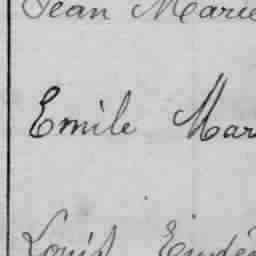 Jean Marie
Emile Mar
Louis